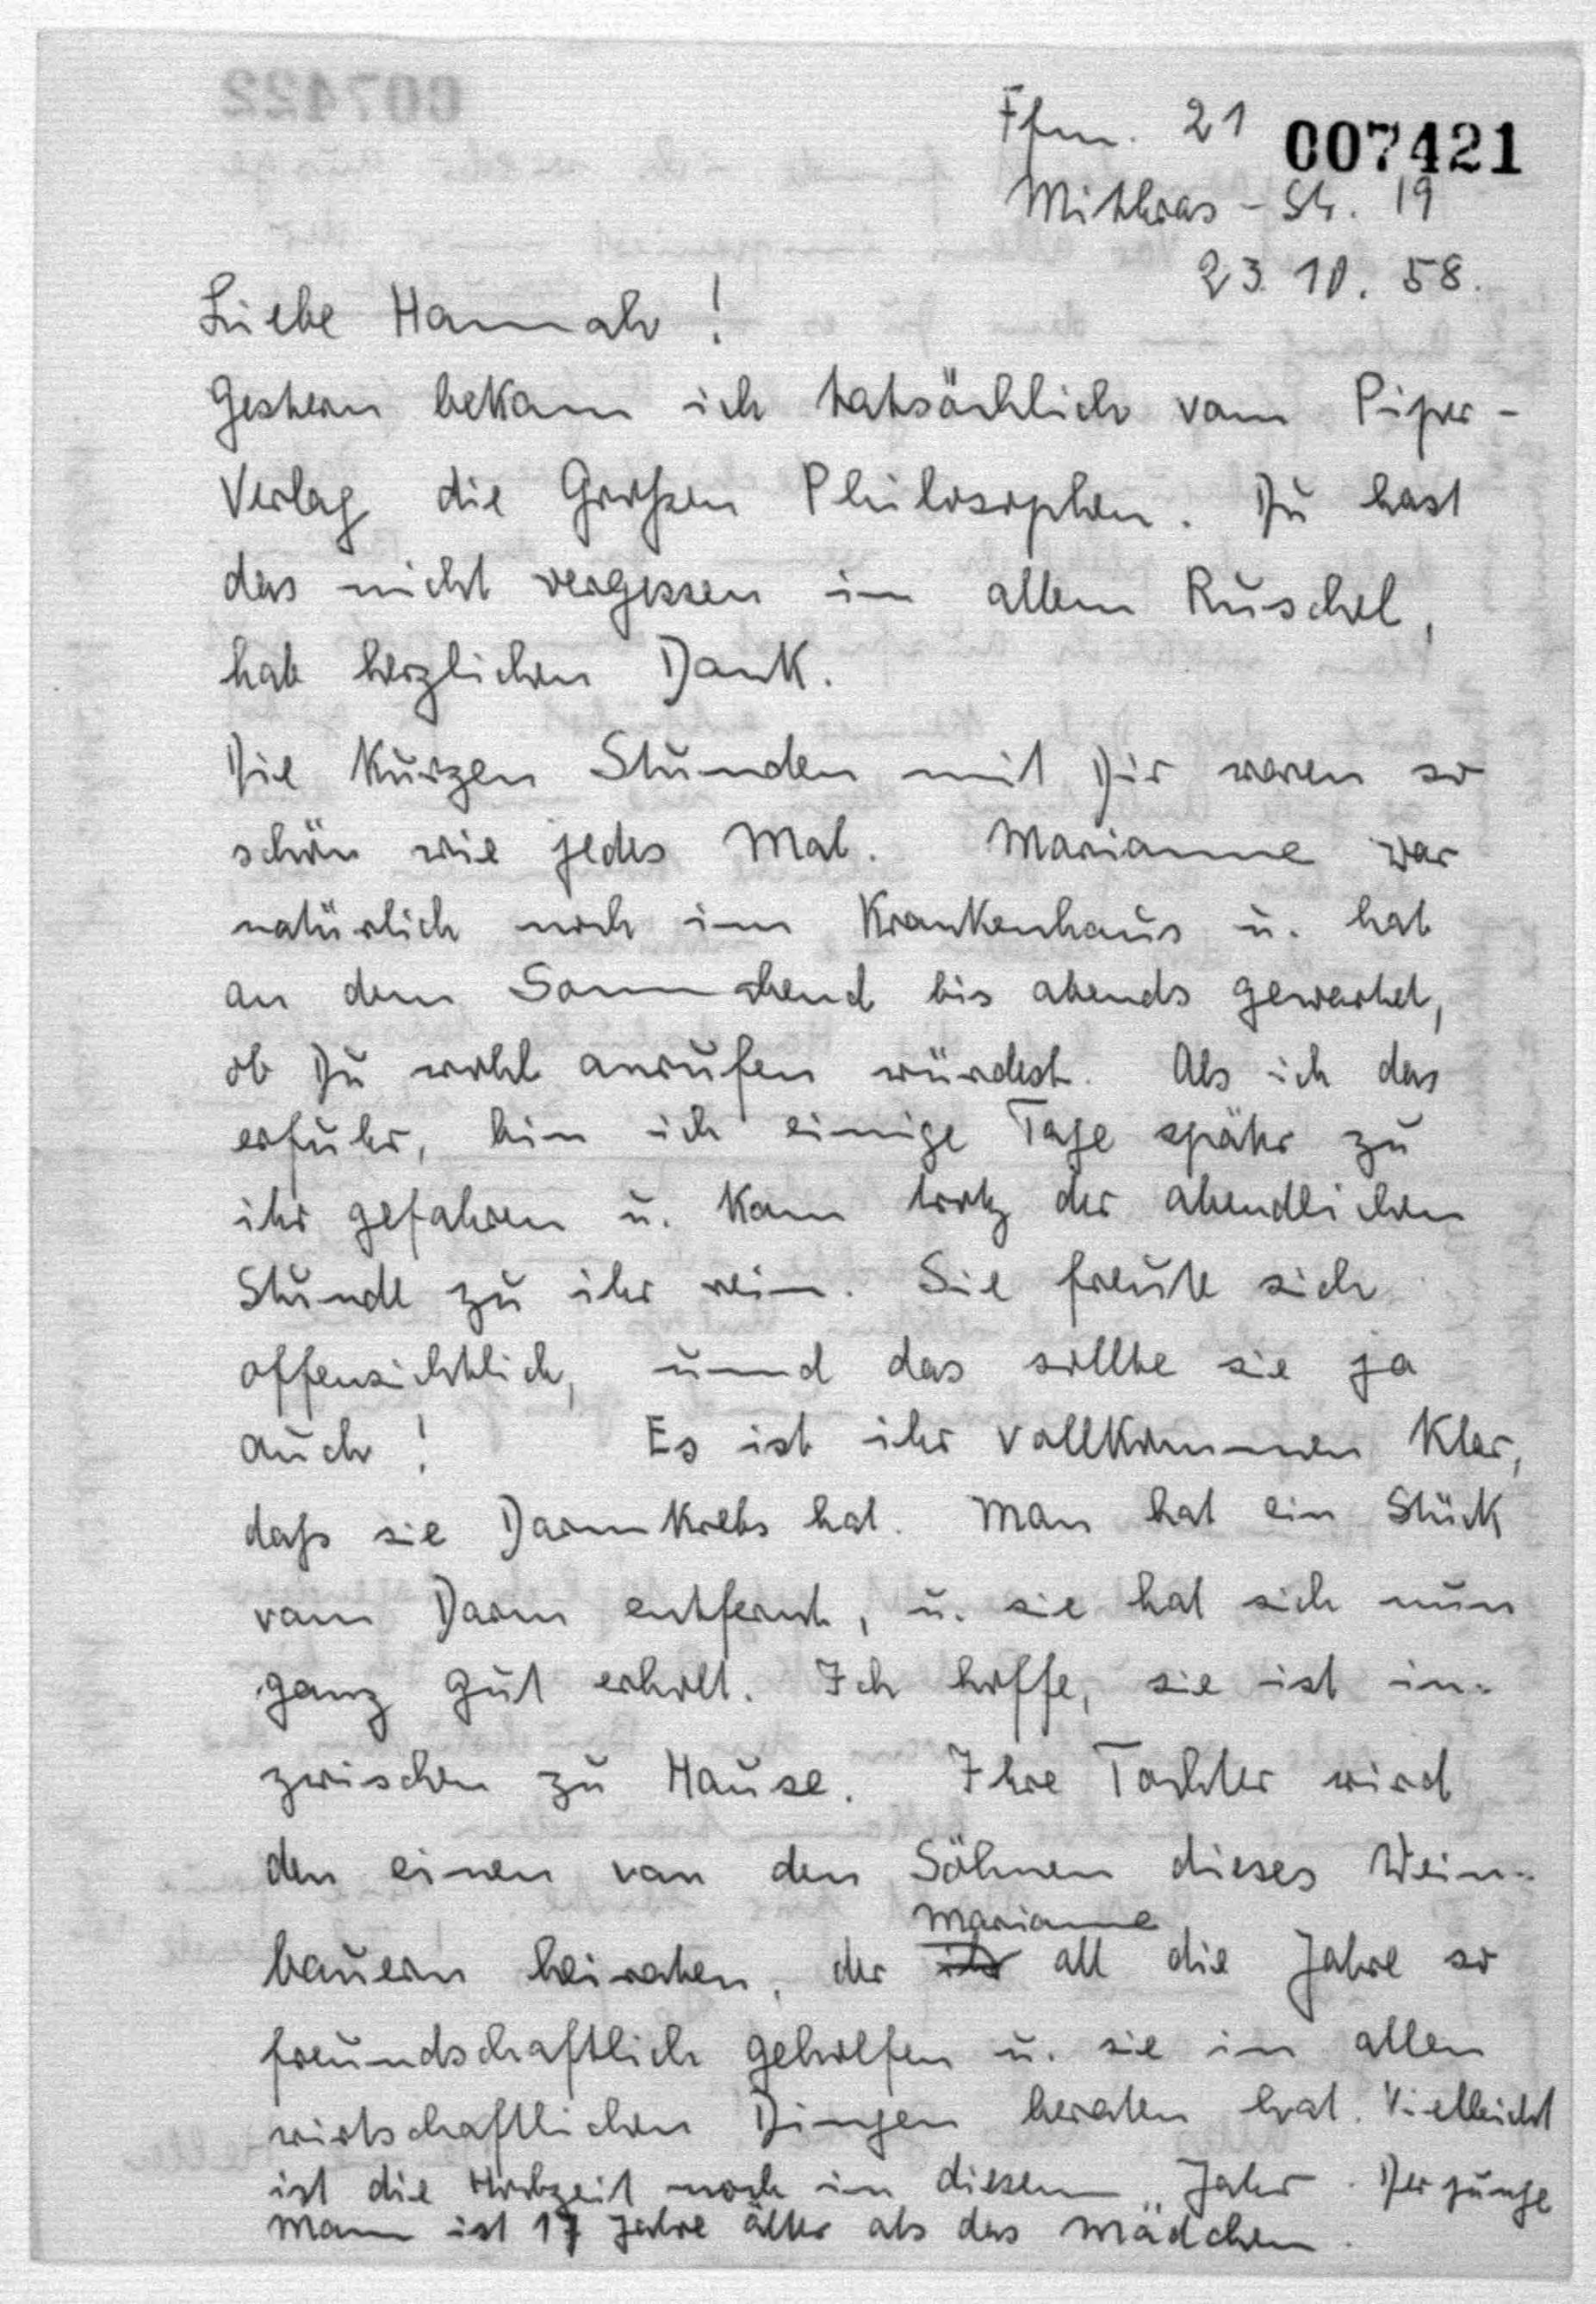 007422
Ffm. 21
007421
Mithras-Str. 19
23.10.58.
Liebe Hannah!
Gestern bekam ich tatsächlich vom Piper-
Verlag die Großen Philosophen. Du hast
das nicht vergessen im allem Ruschel,
hab herzlichen Dank.
Die kurzen Stunden mit Dir waren so
schön wie jedes Mal. Marianne war
natürlich noch im Krankenhaus u. hat
an dem Sonnabend bis abends gewartet,
ob Du wohl anrufen würdest. Als ich das
erfuhr, bin ich einige Tage später zu
ihr gefahren u. kam trotz der abendlichen
Stunde zu ihr rein. Sie freute sich
offensichtlich, uund das sollte sie ja
auch! Es ist ihr vollkommen klar,
daß sie Darmkrebs hat. Man hat ein Stück
vom Darm entfernt, u. sie hat sich nun
ganz gut erholt. Ich hoffe, sie ist in-
zwischen zu Hause. Ihre Tochter wird
den einen von den Söhnen dieses Wein-
Marianne
bauern heiraten, der ihr all die Jahre so
freundschaftlich geholfen u. sie in allen
wirtschaftlichen Dingen beraten hat. Vielleicht
ist die Hochzeit noch in diesem Jahr. Der junge
Mann ist 17 Jahre älter als das Mädchen.